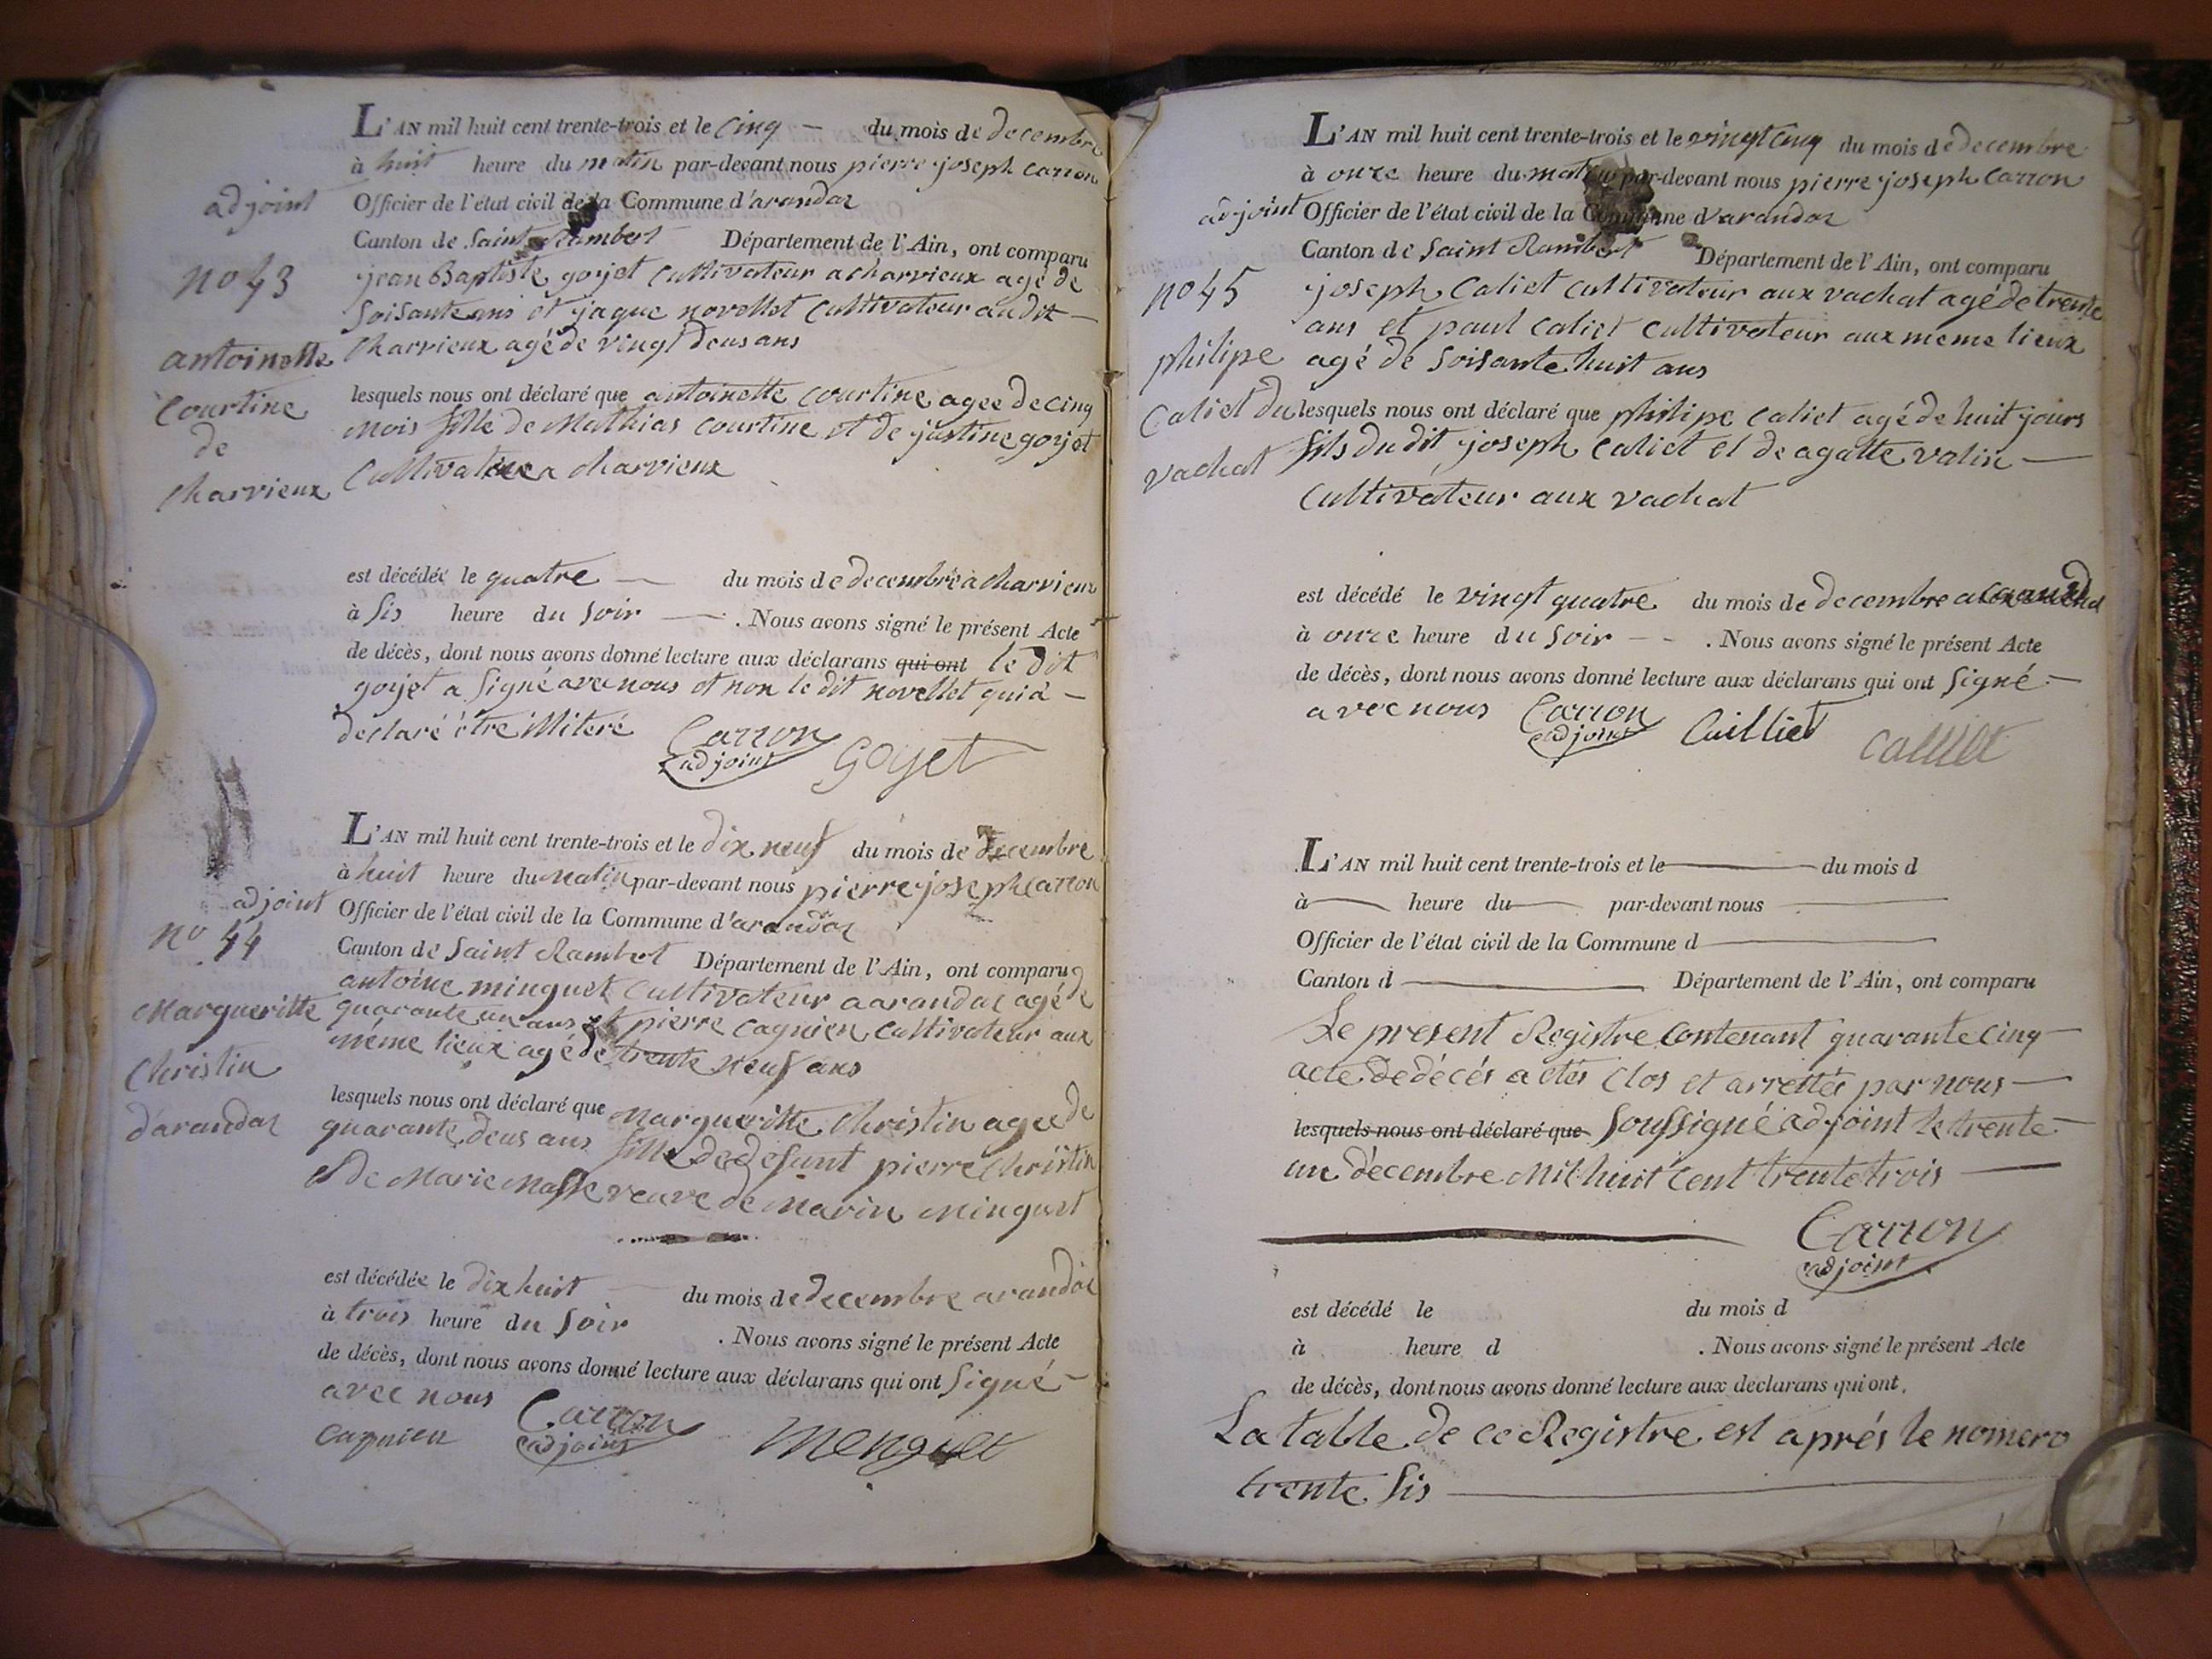 L'AN mil huit cent trente-trois et le cinq — du mois de decembre
à huit heure du matin par-devant nous pierre joseph carron
adjoint Officier de l'état civil de la Commune d'arandas
Canton de Saint Rambert Département de l'Ain, ont comparu
no 43
jean Baptiste goyet cultivateur a charvieux agé de
soisante ans et jaque novellet cultivateur audit —
charvieux agé de vingt deus ans
antoinette
courtine
de
charvieux
lesquels nous ont déclaré que antoinette courtine agee de cinq
mois fille de Mathias courtine et de justine goyet
cultivateur a charvieux
est décédée le quatre — du mois de decembre a charvieux
à sis heure du soir — . Nous avons signé le présent Acte
de décès, dont nous avons donné lecture aux déclarans qui ont le dit
goyet a signé avec nous et non le dit novellet qui a —
declaré être illiteré
Carron
adjoint
goyet
L'AN mil huit cent trente-trois et le dix neuf du mois de decembre
à huit heure du matin par-devant nous pierre joseph carron
adjoint Officier de l'état civil de la Commune d'arandas
no 44
Canton de Saint Rambert Département de l'Ain, ont comparu
antoine minguet cultivateur a arandas agé de
quarante un ans et pierre cagnien cultivateur aux
même lieux agé de trente neuf ans
Margueritte
Christin
d'arandas
lesquels nous ont déclaré que margueritte christin agee de
quarante deus ans fille de defunt pierre christin
et de Marie Masse veuve de marin minguet
est décédée le dix huit — du mois de decembre arandas
à trois heure du soir . Nous avons signé le présent Acte
de décès, dont nous avons donné lecture aux déclarans qui ont signé —
avec nous
Carron
adjoint
cagnien
menguet
L'AN mil huit cent trente-trois et le vingt cinq du mois de decembre
à onze heure du matin par-devant nous pierre joseph carron
adjoint Officier de l'état civil de la Commune d'arandas
Canton de Saint Rambert Département de l'Ain, ont comparu
no 45
joseph caliet cultivateur aux vachat agé de trente
ans et paul caliet cultivateur aux meme lieux
agé de soisante huit ans
philipe
caliet du
vachat
lesquels nous ont déclaré que philipe caliet agé de huit jours
fils du dit joseph caliet et de agatte valin —
cultivateur aux vachat
est décédé le vingt quatre du mois de decembre
à onze heure du soir — - . Nous avons signé le présent Acte
de décès, dont nous avons donné lecture aux déclarans qui ont signé —
avec nous
Carron
adjoint
Cailliet
calliet
L'AN mil huit cent trente-trois et le — du mois d
à — heure du — par-devant nous —
Officier de l'état civil de la Commune d —
Canton d — Département de l'Ain, ont comparu
Le present Registre contenant quarante cinq —
acte de décés a etés clos et arrettés par nous —
lesquels nous ont déclaré que soussigné adjoint le trente —
un décembre mil huit cent trente trois —
Carron
adjoint
est décédé le du mois d
à heure d . Nous avons signé le présent Acte
de décès, dont nous avons donné lecture aux déclarans qui ont.
La table de ce Registre est aprés le nomero
trente sis —